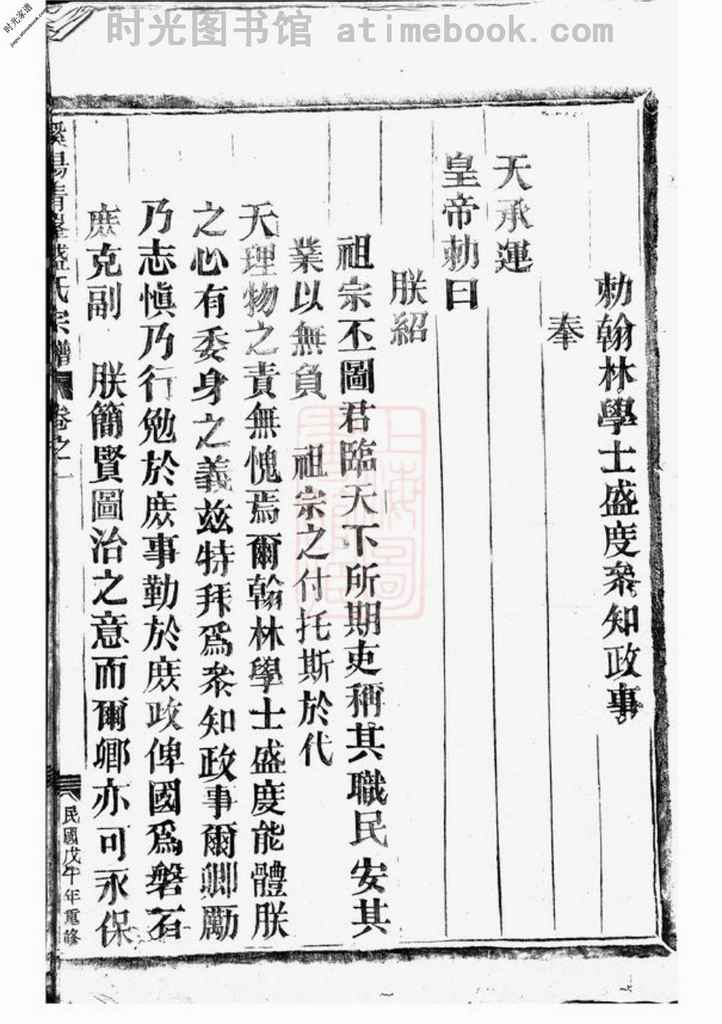 时光图书馆 atimebook.com
时光家谱
勅翰林學士盛度叅知政事
奉
天承運
皇帝勅曰
朕紹
祖宗丕圖君臨天下所期吏稱其職民安其
業以無負 祖宗之付托斯於代
天理物之責無愧焉爾翰林學士盛度能體朕
之心有委身之義兹特拜爲叅知政事爾卿勵
乃志愼乃行勉於庶事勤於庶政俾國爲磐石
庶克副 朕簡賢圖治之意而爾卿亦可永保
陽青
盛氏宗譜
卷之一
民國戊午年重修